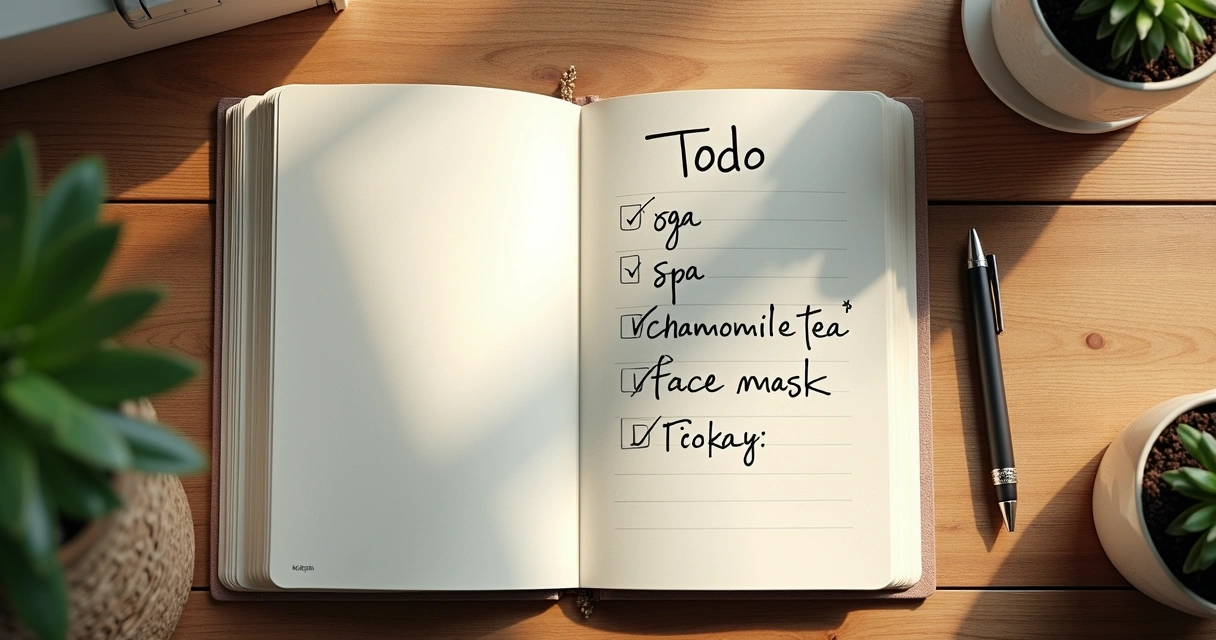 Todo
oga
spa
chamomile tea*
face mask
Ticokay: